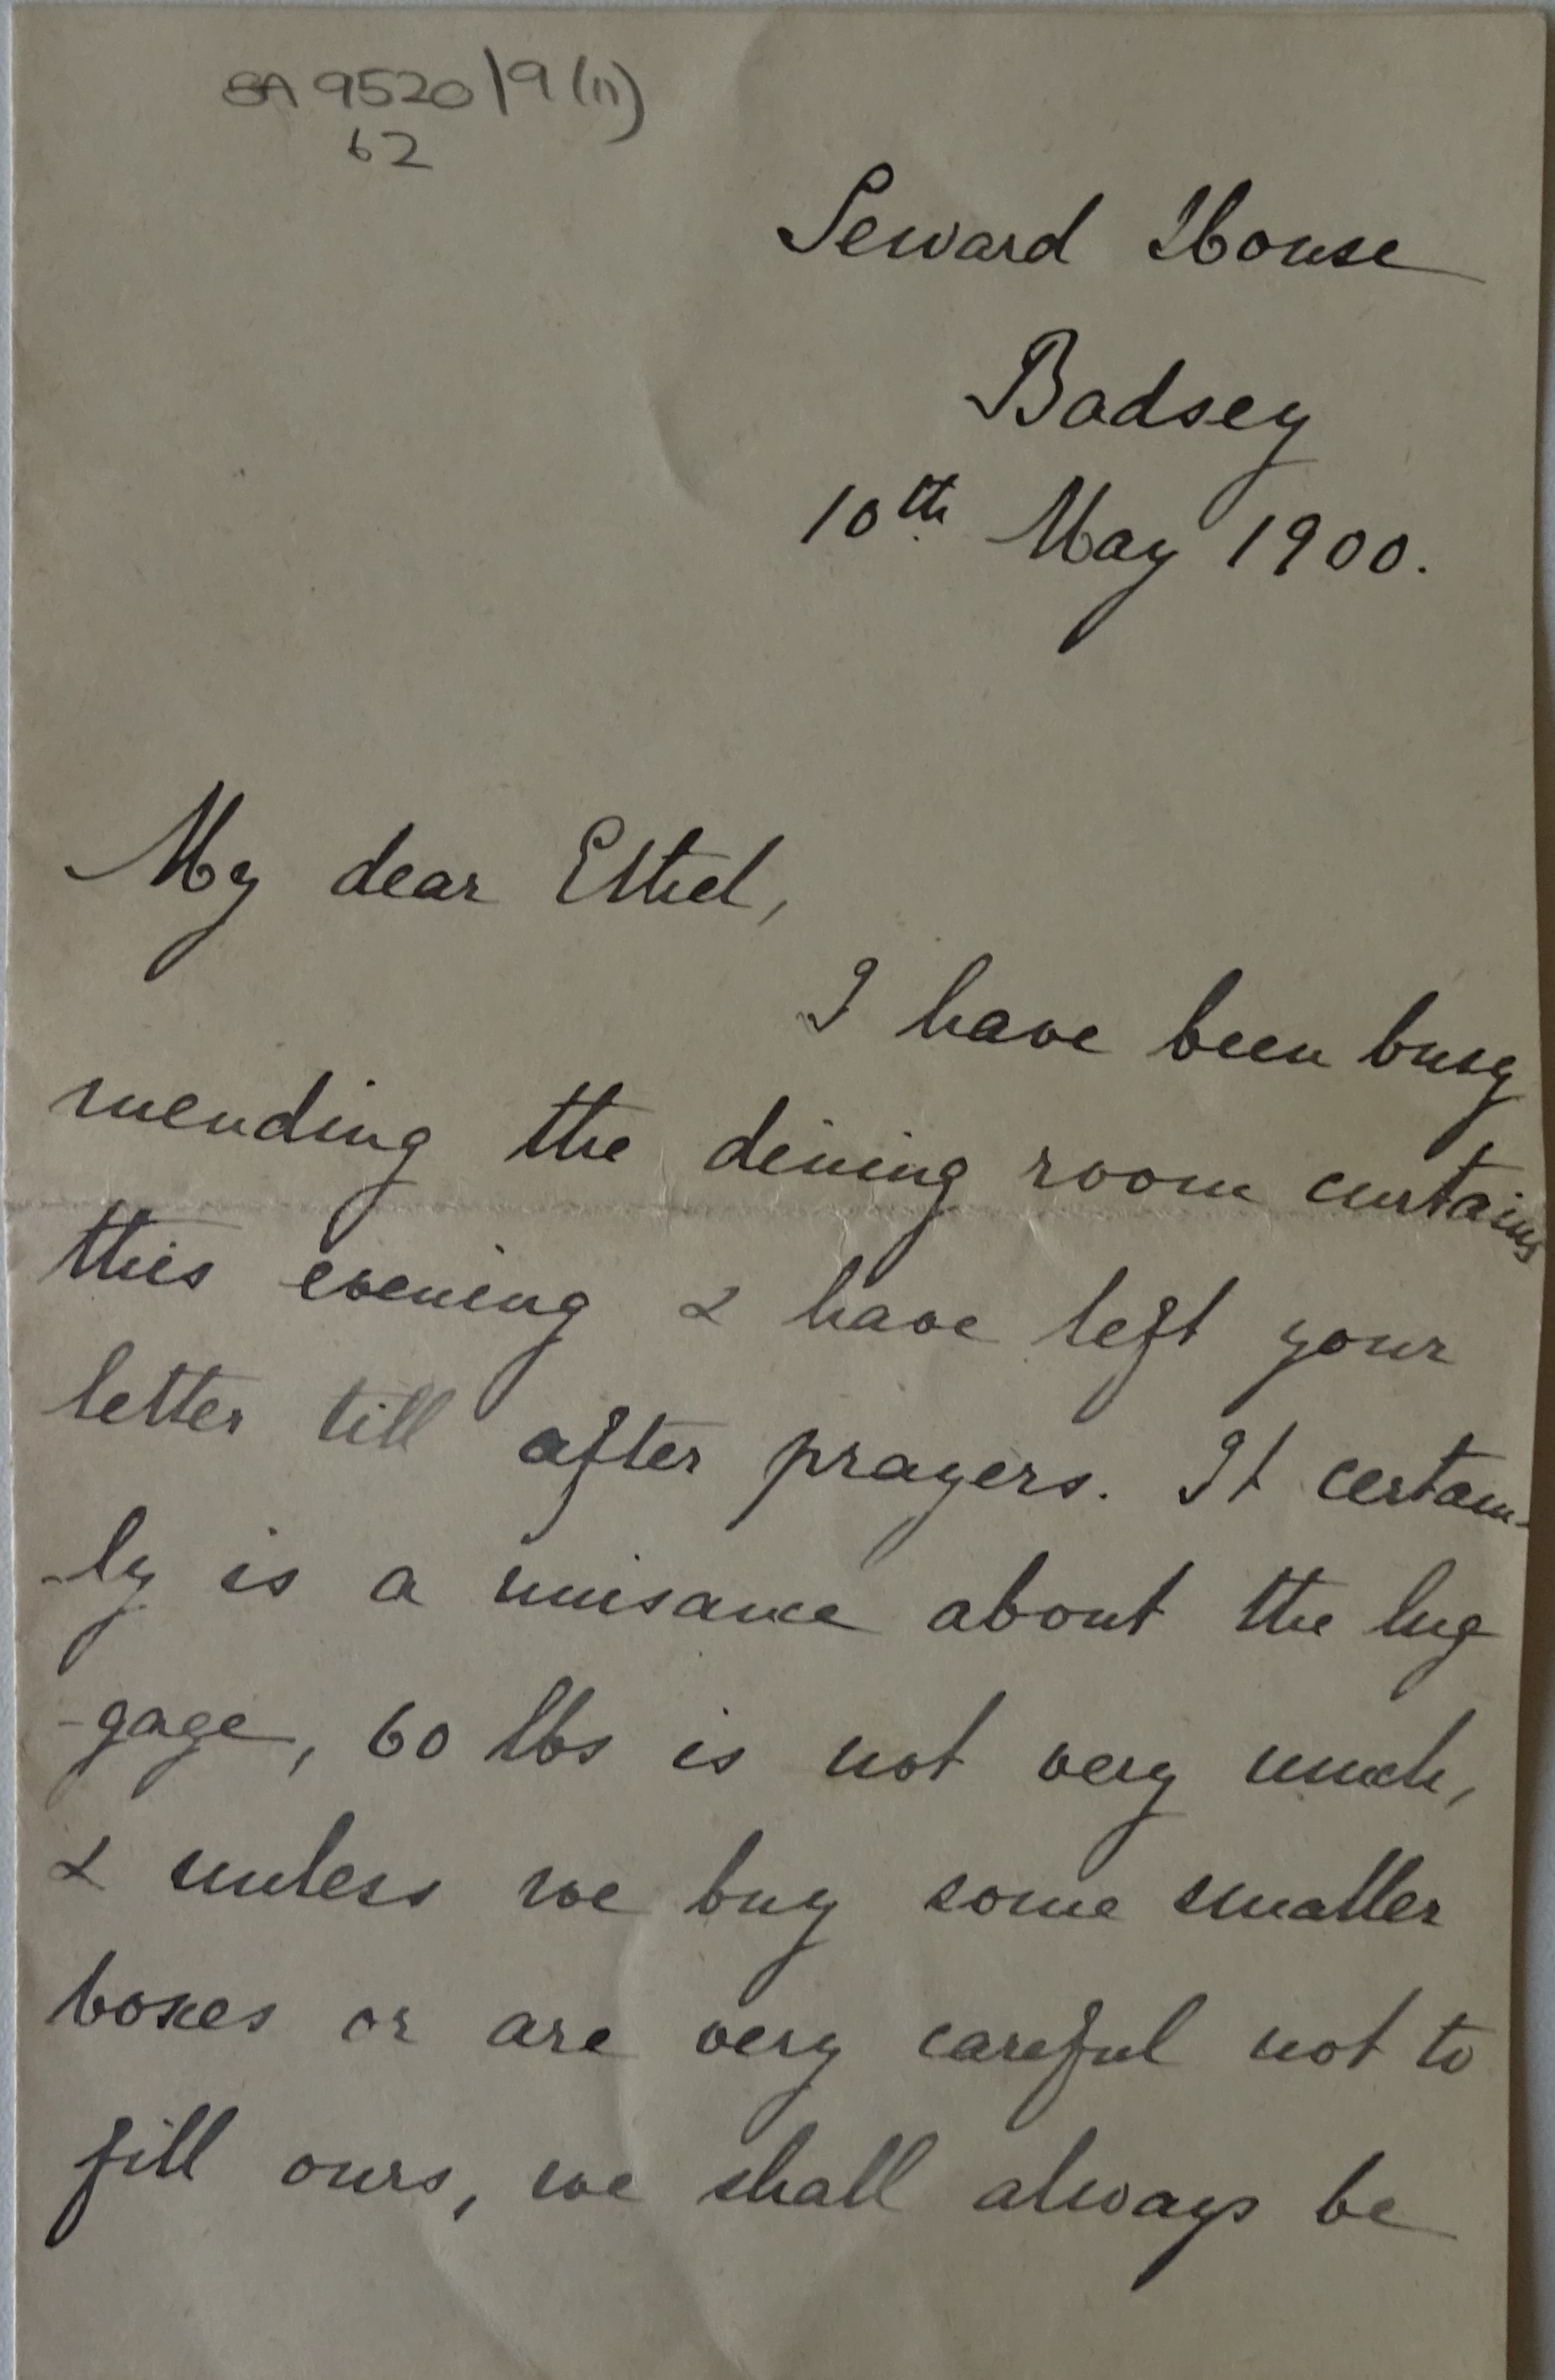 BA 9520/9(11)
62
Seward House
Badsey
10th May 1900.
My dear Ethel,
I have been busy
mending the dining room curtains
this evening & have left your
letter till after prayers. It certain-
-ly is a nuisance about the lug
-gage, 60 lbs is not very much,
& unless we buy some smaller
boxes or are very careful not to
fill ours, we shall always be